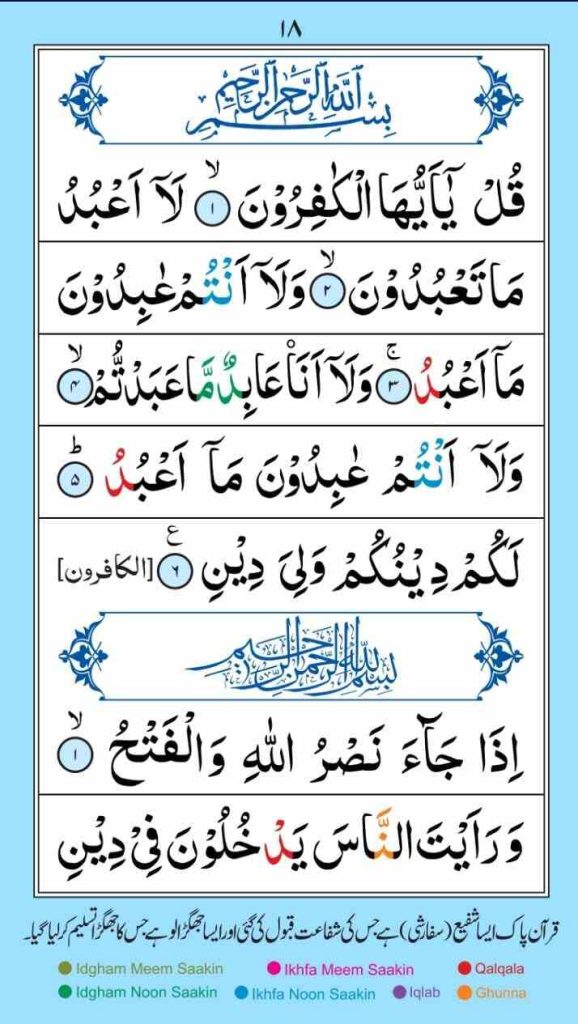 ١٨
بِسْمِ اللهِ الرَّحْمٰنِ الرَّحِيْمِ
قُلْ يٰۤاَيُّهَا الْكٰفِرُوْنَ ۙ﴿۱﴾ لَاۤ اَعْبُدُ
مَا تَعْبُدُوْنَ ۙ﴿۲﴾ وَلَاۤ اَنْتُمْ عٰبِدُوْنَ
مَاۤ اَعْبُدُ ۚ﴿۳﴾ وَلَاۤ اَنَا۠ عَابِدٌ مَّا عَبَدْتُّمْ ۙ﴿۴﴾
وَلَاۤ اَنْتُمْ عٰبِدُوْنَ مَاۤ اَعْبُدُ ؕ﴿۵﴾
لَكُمْ دِيْنُكُمْ وَلِيَ دِيْنِ ﴿۶﴾ ع [الكافرون]
بِسْمِ اللهِ الرَّحْمٰنِ الرَّحِيْمِ
اِذَا جَآءَ نَصْرُ اللهِ وَالْفَتْحُ ۙ﴿۱﴾
وَرَاَيْتَ النَّاسَ يَدْخُلُوْنَ فِيْ دِيْنِ
قرآن پاک ایسا شفیع (سفارشی) ہے جس کی شفاعت قبول کی گئی اور ایسا جھگڑالو ہے جس کا جھگڑا تسلیم کر لیا گیا۔
Idgham Meem Saakin Ikhfa Meem Saakin Qalqala
Idgham Noon Saakin Ikhfa Noon Saakin Iqlab Ghunna